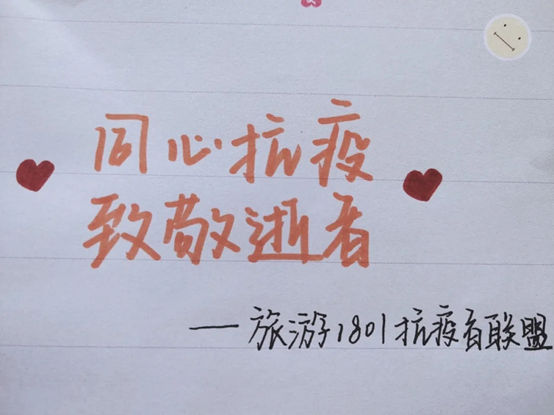 同心抗疫
致敬逝者
—旅游1801抗疫者联盟